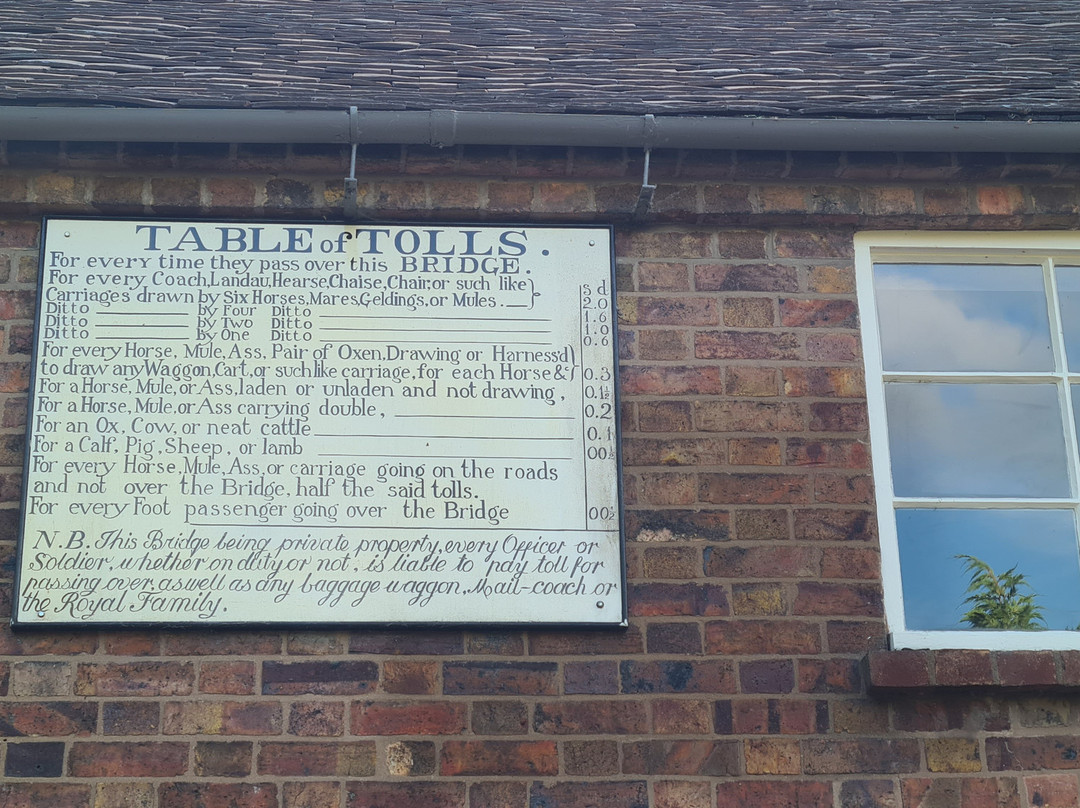 TABLE of TOLLS.
For every time they pass over this BRIDGE.
For every Coach, Landau, Hearse, Chaise, Chair, or such like s d
Carriages drawn by Six Horses, Mares, Geldings, or Mules. 2.0
Ditto by Four Ditto 1.6
Ditto by Two Ditto 1.0
Ditto by One Ditto 0.6
For every Horse, Mule, Ass, Pair of Oxen, Drawing or Harness'd
to draw any Waggon, Cart, or such like carriage, for each Horse &c 0.3
For a Horse, Mule, or Ass, laden or unladen and not drawing, 0.1½
For a Horse, Mule, or Ass carrying double, 0.2
For an Ox, Cow, or neat cattle 0.1
For a Calf, Pig, Sheep, or lamb 00½
For every Horse, Mule, Ass, or carriage going on the roads
and not over the Bridge, half the said tolls.
For every Foot passenger going over the Bridge 00½
N.B. This Bridge being private property, every Officer or
Soldier, whether on duty or not, is liable to pay toll for
passing over, as well as any baggage waggon, Mail-coach or
the Royal Family.